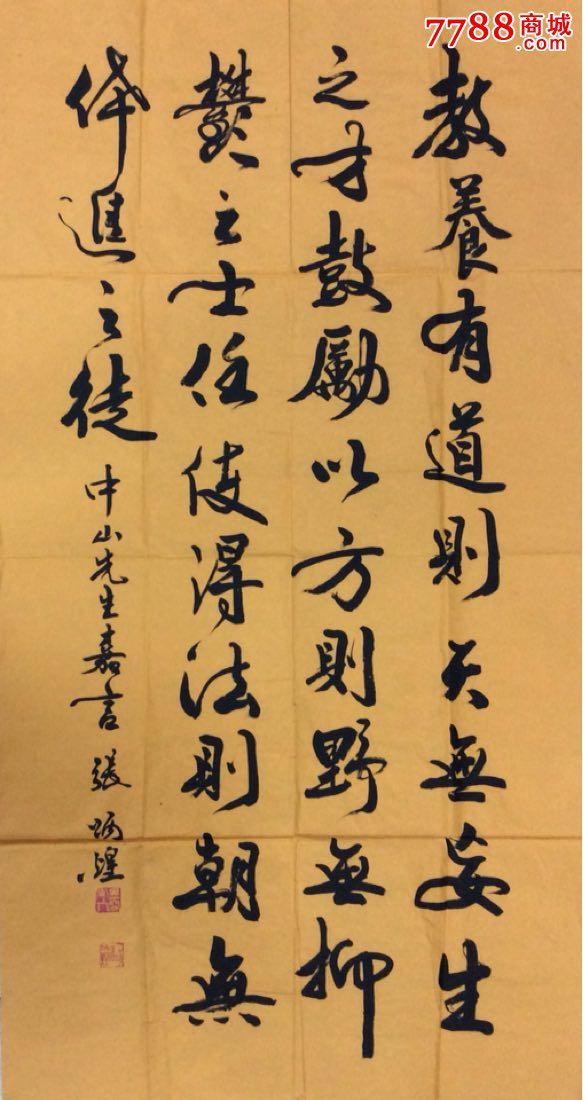 7788商城
.com
教養有道則天無妄生
之才鼓勵以方則野無抑
鬱之士任使得法則朝無
倖進之徒
中山先生嘉言 張炳煌